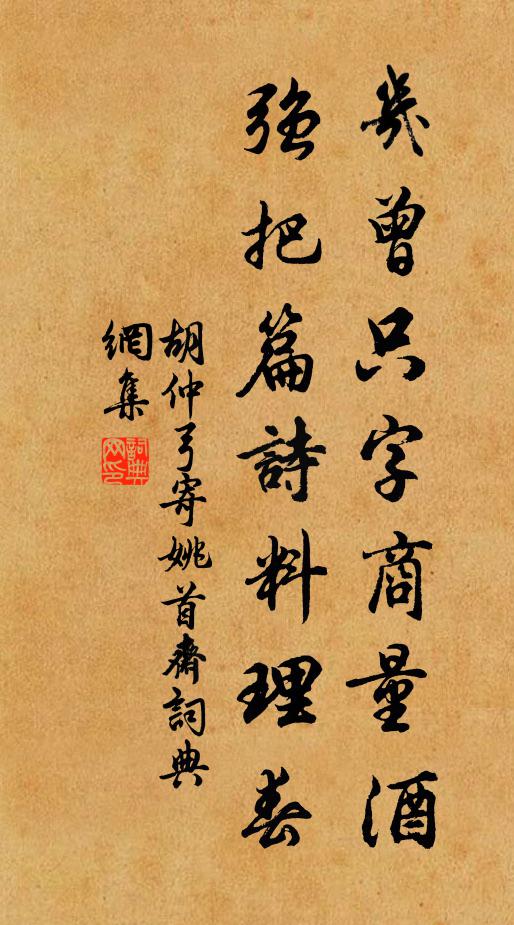 幾曾只字商量酒
強把篇詩料理春
胡仲弓寄姚首齋詞典
網集
詞典
网印